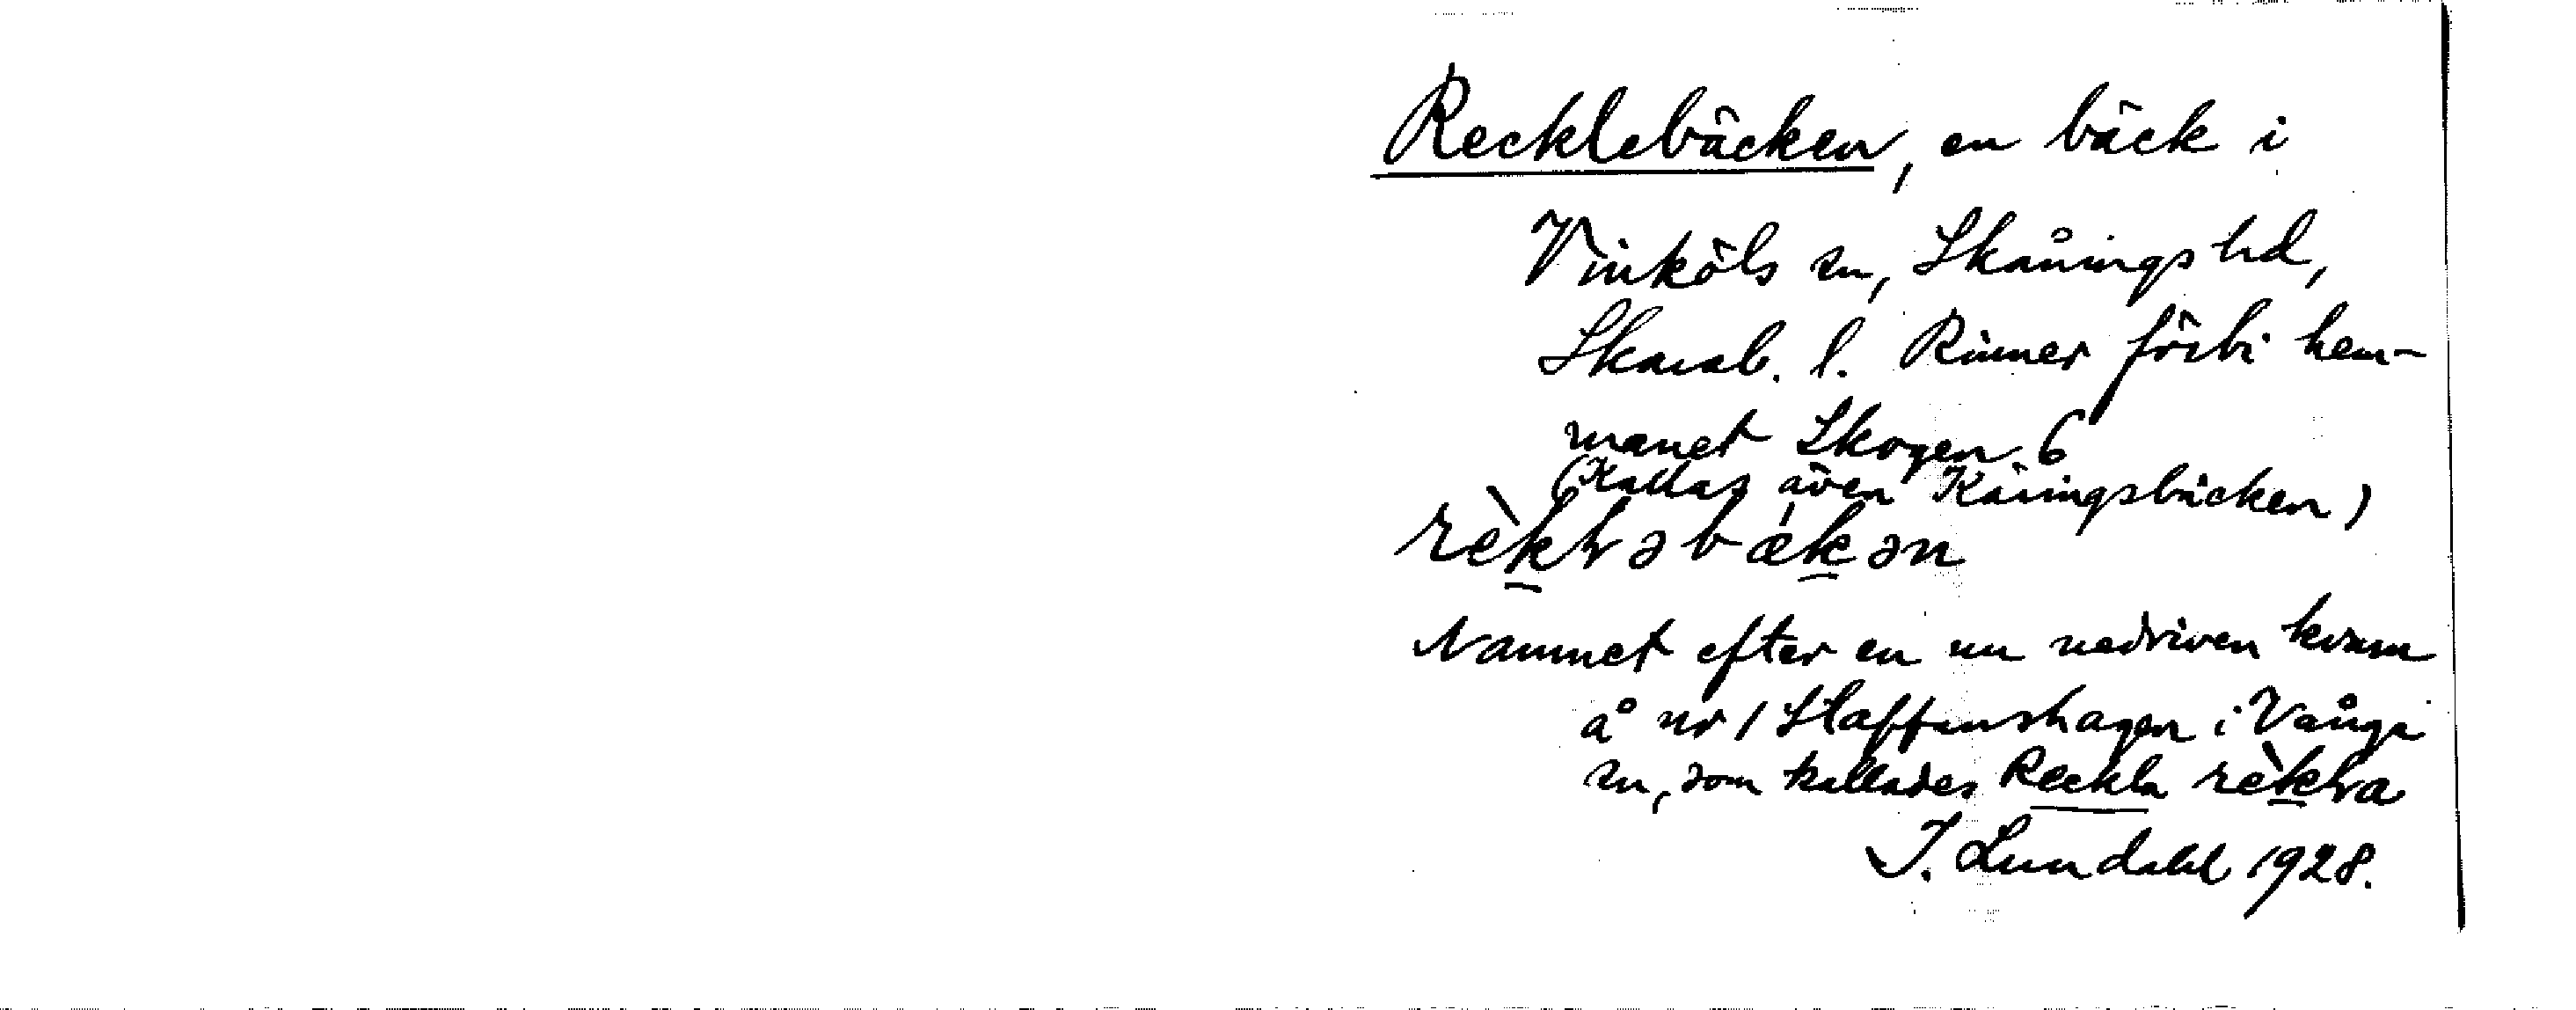 Recklebäcken, en bäck i
Vinköls sn, Skånings hd,
Skarab. l. Rinner förbi hem-
manet Skogen 6
(Kallas även Käringsbäcken)
Namnet efter en nu nedriven kvarn
å nr 1 Staffanshagen i Vånga
sn, som kallades Reckla
J. Lundahl 1928.